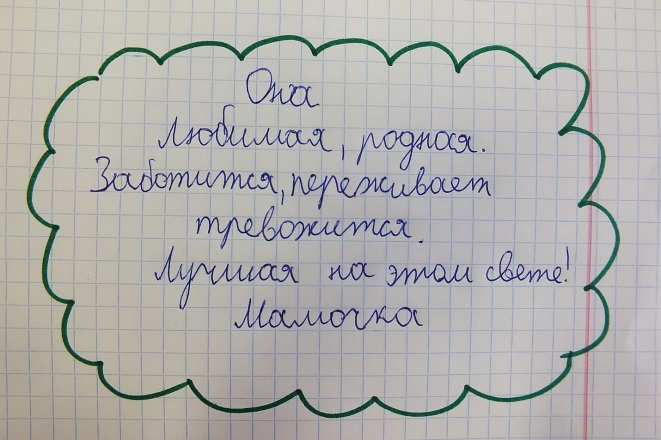 Она
Любимая, родная.
Заботится, переживает
тревожится.
Лучшая на этом свете!
Мамочка